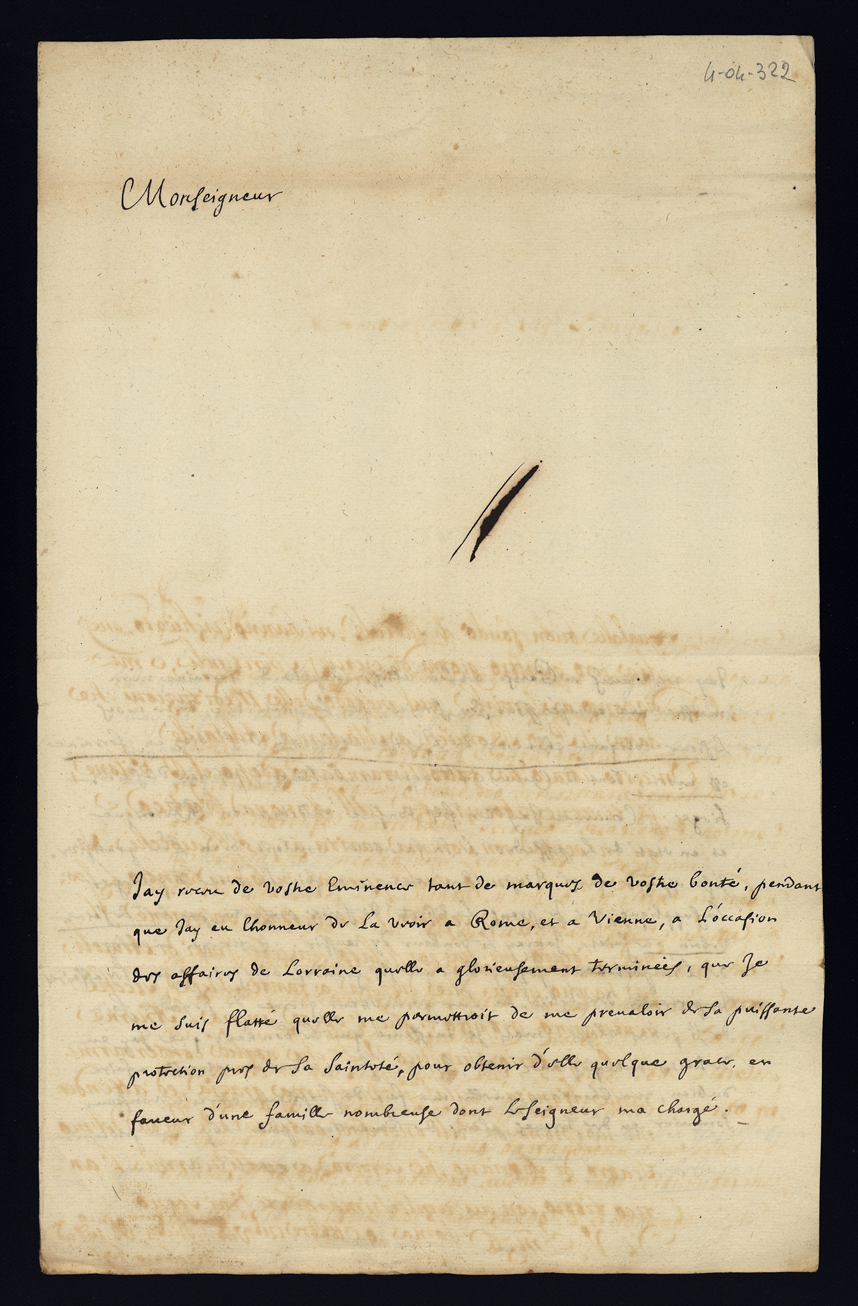 4-04-322
Monseigneur
Jay receu de vostre Eminence tant de marques de vostre bonté, pendant
que Jay eu lhonneur de La veoir a Rome, et a Vienne, a L'occasion
des affaires de Lorraine quelle a glorieusement terminées, que Je
me suis flatté quelle me permettroit de me prevaloir de sa puissante
protection pres de sa Sainteté, pour obtenir d'elle quelque grace, en
faveur d'une famille nombreuse dont Le Seigneur ma chargé.